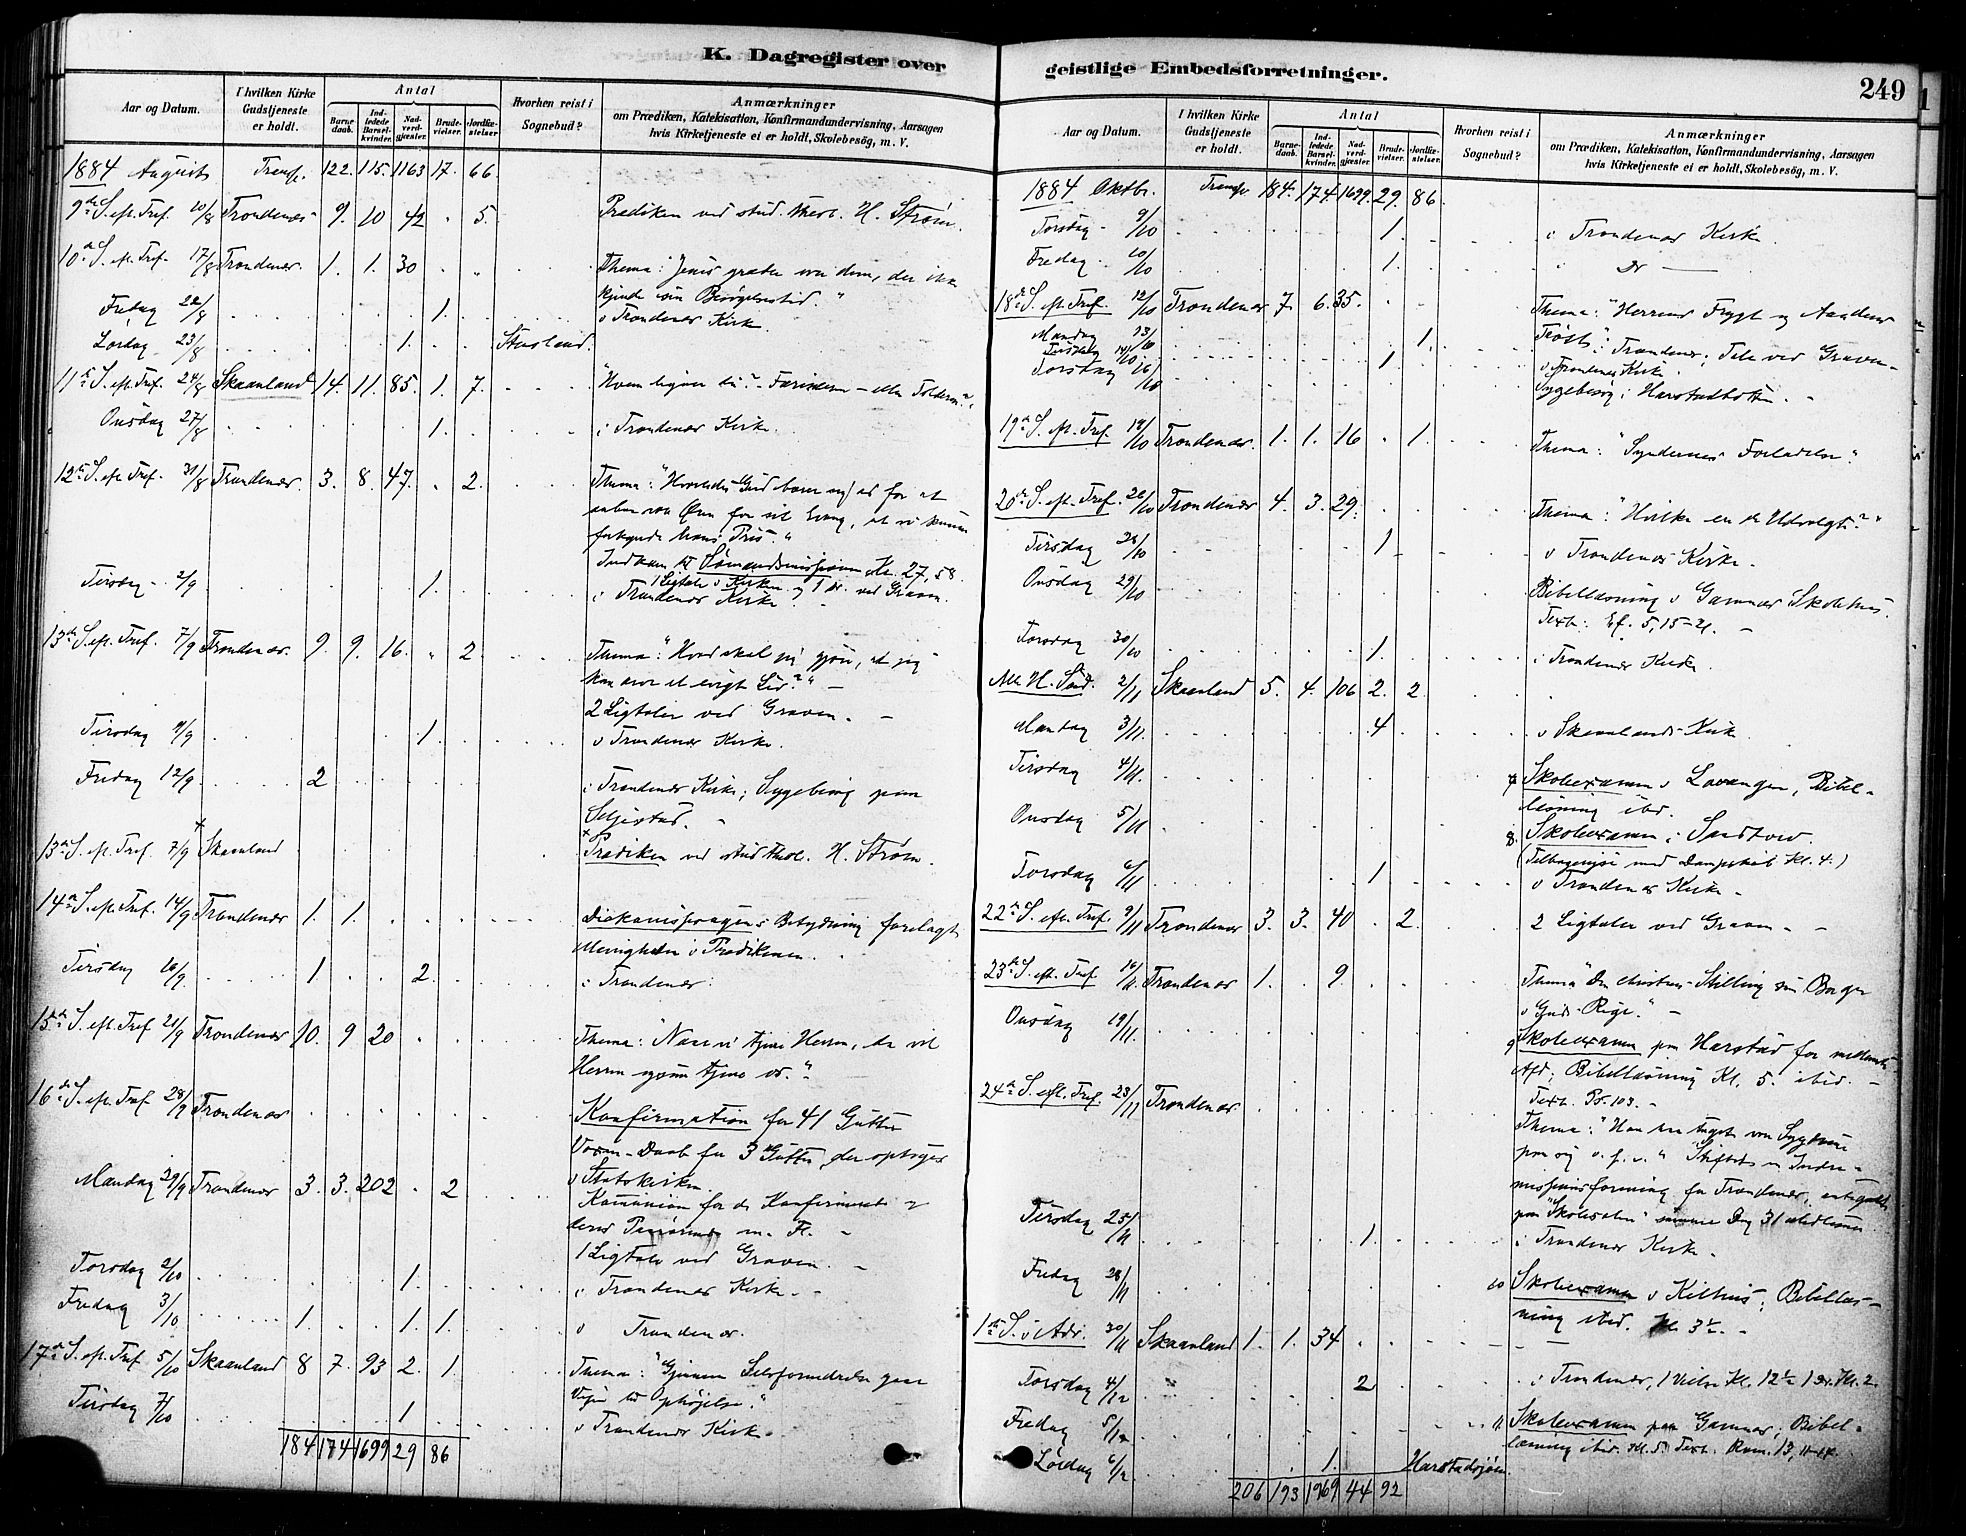 K. Dagregister over
Aar og Datum.
I hvilken Kirke Gudstjeneste er holdt.
Antal
Barne-daab.
Ind-ledede Barsel-kvinder.
Nad-verd-gjæster.
Brude-vielser.
Jordfæ-stelser
Hvorhen reist i Sognebud?
Anmærkninger
om Prædiken, Katekisation, Konfirmandundervisning, Aarsagen
hvis Kirketjeneste ei er holdt, Skolebesög, m. V.
1884 August Transp. 122. 115. 1163 17. 66
9de S. eft. Tref. 10/8 Trondenæs 9. 10 42 . 5. Prædiken ved stud. theol. H. Strøm.
10de S. eft. Tref. 17/8 Trondenæs. 1. 1. 30 Thema: "Jesus græder over dem, der ikke
kjende sin Besøgelsestid."
Fredag 22/8 1. i Trondenæs Kirke.
Lørdag 23/8 1.
11te S. eft. Tref. 24/8 Skaanland 14. 11. 85. 1. 7. "Hvem ligner du? - Farisæeren - eller Tolderen?"
Onsdag 27/8 1. i Trondenæs Kirke.
12te S. eft. Tref. 31/8 Trondenæs. 3. 8. 47. . 2. Thema: "Hvorledes Gud bærer sig ad for at
aabne vor Øren for sit Evang., at vi kunne
forkynde hans Pris."
Indkom til Sømandsmissionen Kr. 27,58.
1 Ligtale i Kirken og 1 do. ved Graven.
Tirsdag - 2/9 1. i Trondenæs Kirke.
13de S. eft. Tref. 7/9 Trondenæs. 9. 9. 16. " 2. Thema: "Hvad skal jeg gjøre, at jeg
kan arve et evigt Liv?" -
2 Ligtaler ved Graven. -
Tirsdag 9/9 1. i Trondenæs Kirke.
Fredag 12/9. 2 i Trondenæs Kirke; Sygebesøg paa
Seljestad. -
13de S. eft. Tref. 7/9 × Skaanland × Prædiken ved stud. theol. H. Strøm.
14de S. eft. Tref. 14/9 Trondenæs 1. 1. Diakonissesagens Betydning forelagt
Menigheden i Prædikenen.
Tirsdag 16/9. 1 2. i Trondenæs.
15de S. eft. Tref 21/9 Trondenæs 10. 9 20 Thema: "Naar vi tjene Herren, da vil
Herren igjen tjene os."
16de S. eft. Tref 28/9 Trondenæs Konfirmation for 41 Gutter
Voxen-Daab for 3 Gutter, der optoges
i Statskirken.
Mandag 29/9 Trondenæs 3. 3. 202 . 2 Kommunion for de Konfirmerede og
deres Paarørende m. Fl. -
1 Ligtale ved Graven. -
Torsdag 2/10 1. i Trondenæs Kirke. -
Fredag 3/10 1. 1. 1. i Trondenæs.
17de S. eft. Tref 5/10 Skaanland 8 7. 93 2. 1. Thema: "Gjennem Selvfornedrelse gaar
Vejen til Ophøjelse."
Tirsdag 7/10 1 i Trondenæs Kirke.
184. 174 1699 29 86
geistlige Embedsforretninger.
249
Aar og Datum.
I hvilken Kirke Gudstjeneste er holdt.
Antal
Barne-daab.
Ind-ledede Barsel-kvinder.
Nad-verd-gjæster.
Brude-vielser.
Jordfæ-stelser.
Hvorhen reist i Sognebud?
Anmærkninger
om Prædiken, Katekisation, Konfirmandundervisning, Aarsagen
hvis Kirketjeneste ei er holdt, Skolebesög, m. V.
1884 Oktbr. Transp 184. 174. 1699. 29. 86
Torsdag - 9/10 1. i Trondenæs Kirke.
Fredag 10/10 1. i Do —
18de S. eft. Tref. 12/10 Trondenæs 7. 6. 35. Thema: "Herrens Frygt og Aandens
Trøst."
Mandag 13/10 1. Trondenæs; Tale ved Graven -
Tirsdag 14/10 1 i Trondenæs Kirke.
Torsdag 16/10 Sygebesøg i Harstadbotten. -
19de S. eft. Tref. 19/10 Trondenæs. 1. 1. 16 . 1. Thema: "Syndernes Forladelse."
20de S. eft. Tref. 26/10 Trondenæs 4. 3. 29. Thema: "Hvilke ere de Udvalgte?"
Tirsdag 28/10 1 i Trondenæs Kirke.
Onsdag 29/10 Bibellæsning i Gamnæs Skolehus.
Text: Ef. 5, 15-21. -
Torsdag 30/10 1. i Trondenæs Kirke.
Alle H. Sønd. 2/11 Skaanland 5. 4. 106 2. 2.
Mandag 3/11. 4 i Skaanlands Kirke.
Tirsdag 4/11. 7 Skolexamen i Lavangen, Bibel-
læsning ibid.
Onsdag 5/11 8. Skolexamen i Sandtorv.
(Tilbagerejse med Dampskib Kl. 4.)
Torsdag 6/11 1 i Trondenæs Kirke -
22de S. eft. Tref. 9/11 Trondenæs 3. 3. 40 . 2. 2 Ligtaler ved Graven - -
23de S. eft. Tref 16/11. Trondenæs 1. . 9 Thema "Den Christnes Stilling som Borger
i Guds Rige." -
Onsdag 19/11. 9 Skolexamen paa Harstad for
Afd; Bibellæsning Kl. 5. ibid. -
Text. Ps. 103. -
24de S. eft. Tref. 23/11 Trondenæs. Thema: "Han har taget vor Sygdom
paa sig o. s. v." Stiftedes en Indre-
missionsforening for Trondenæs,
paa "Skolesalen" samme Dag 31 Medlemmer
Tirsdag 25/11 1. i Trondenæs Kirke -
Fredag 28/11 10 Skolexamen i Kilhus; Bibellæs-
ning ibid. Kl. 3½. -
1ste S. i Adv. 30/11 Skaanland 1. 1. 34
Torsdag 4/12 2 i Trondenæs, 1 Vielse Kl. 12½ 1 do. Kl. 2.
Fredag 5/12 11 Skolexamen paa Gamnæs; Bibel-
læsning ibid. Kl. 5. Text. Rom. 13, 11-14.
Lørdag 6/12 1. Harstadsjøen.
206 193 1969 44 92